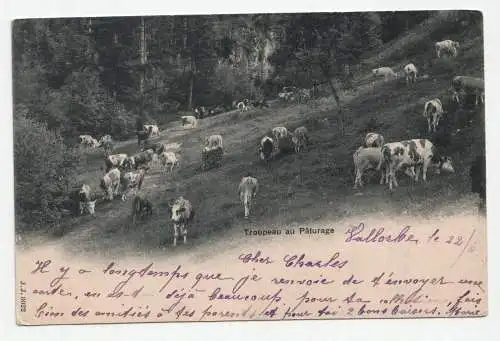 Troupeau au Pâturage
Vallorbe le 22/
Cher Charles
Il y a longtemps que je renvoie de t'envoyer une
carte, en as-t déjà beaucoup, pour ta collection, fais
bien des amitiés à tes parents et pour toi 2 bons baisers. Marie
J.J. 8022